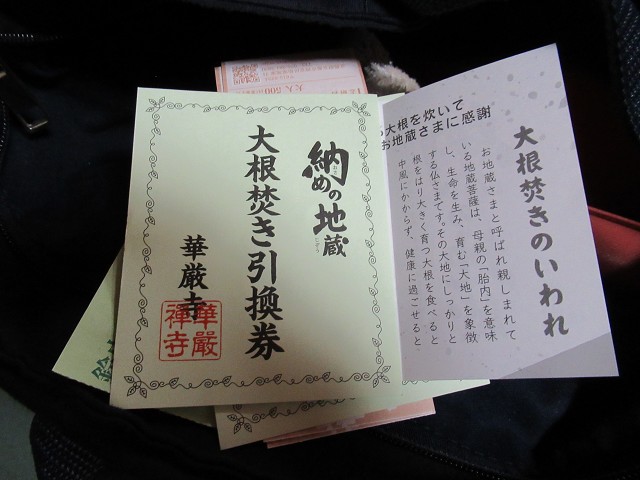 納めの地蔵
大根焚き引換券
華厳寺
華厳
禅寺
大根焚きのいわれ
大根を炊いて
お地蔵さまに感謝
お地蔵さまと呼ばれ親しまれて
いる地蔵菩薩は、母親の「胎内」を意味
し、生命を生み、育む「大地」を象徴
する仏さまです。その大地にしっかりと
根をはり大きく育つ大根を食べると
中風にかからず、健康に過ごせると
大人500